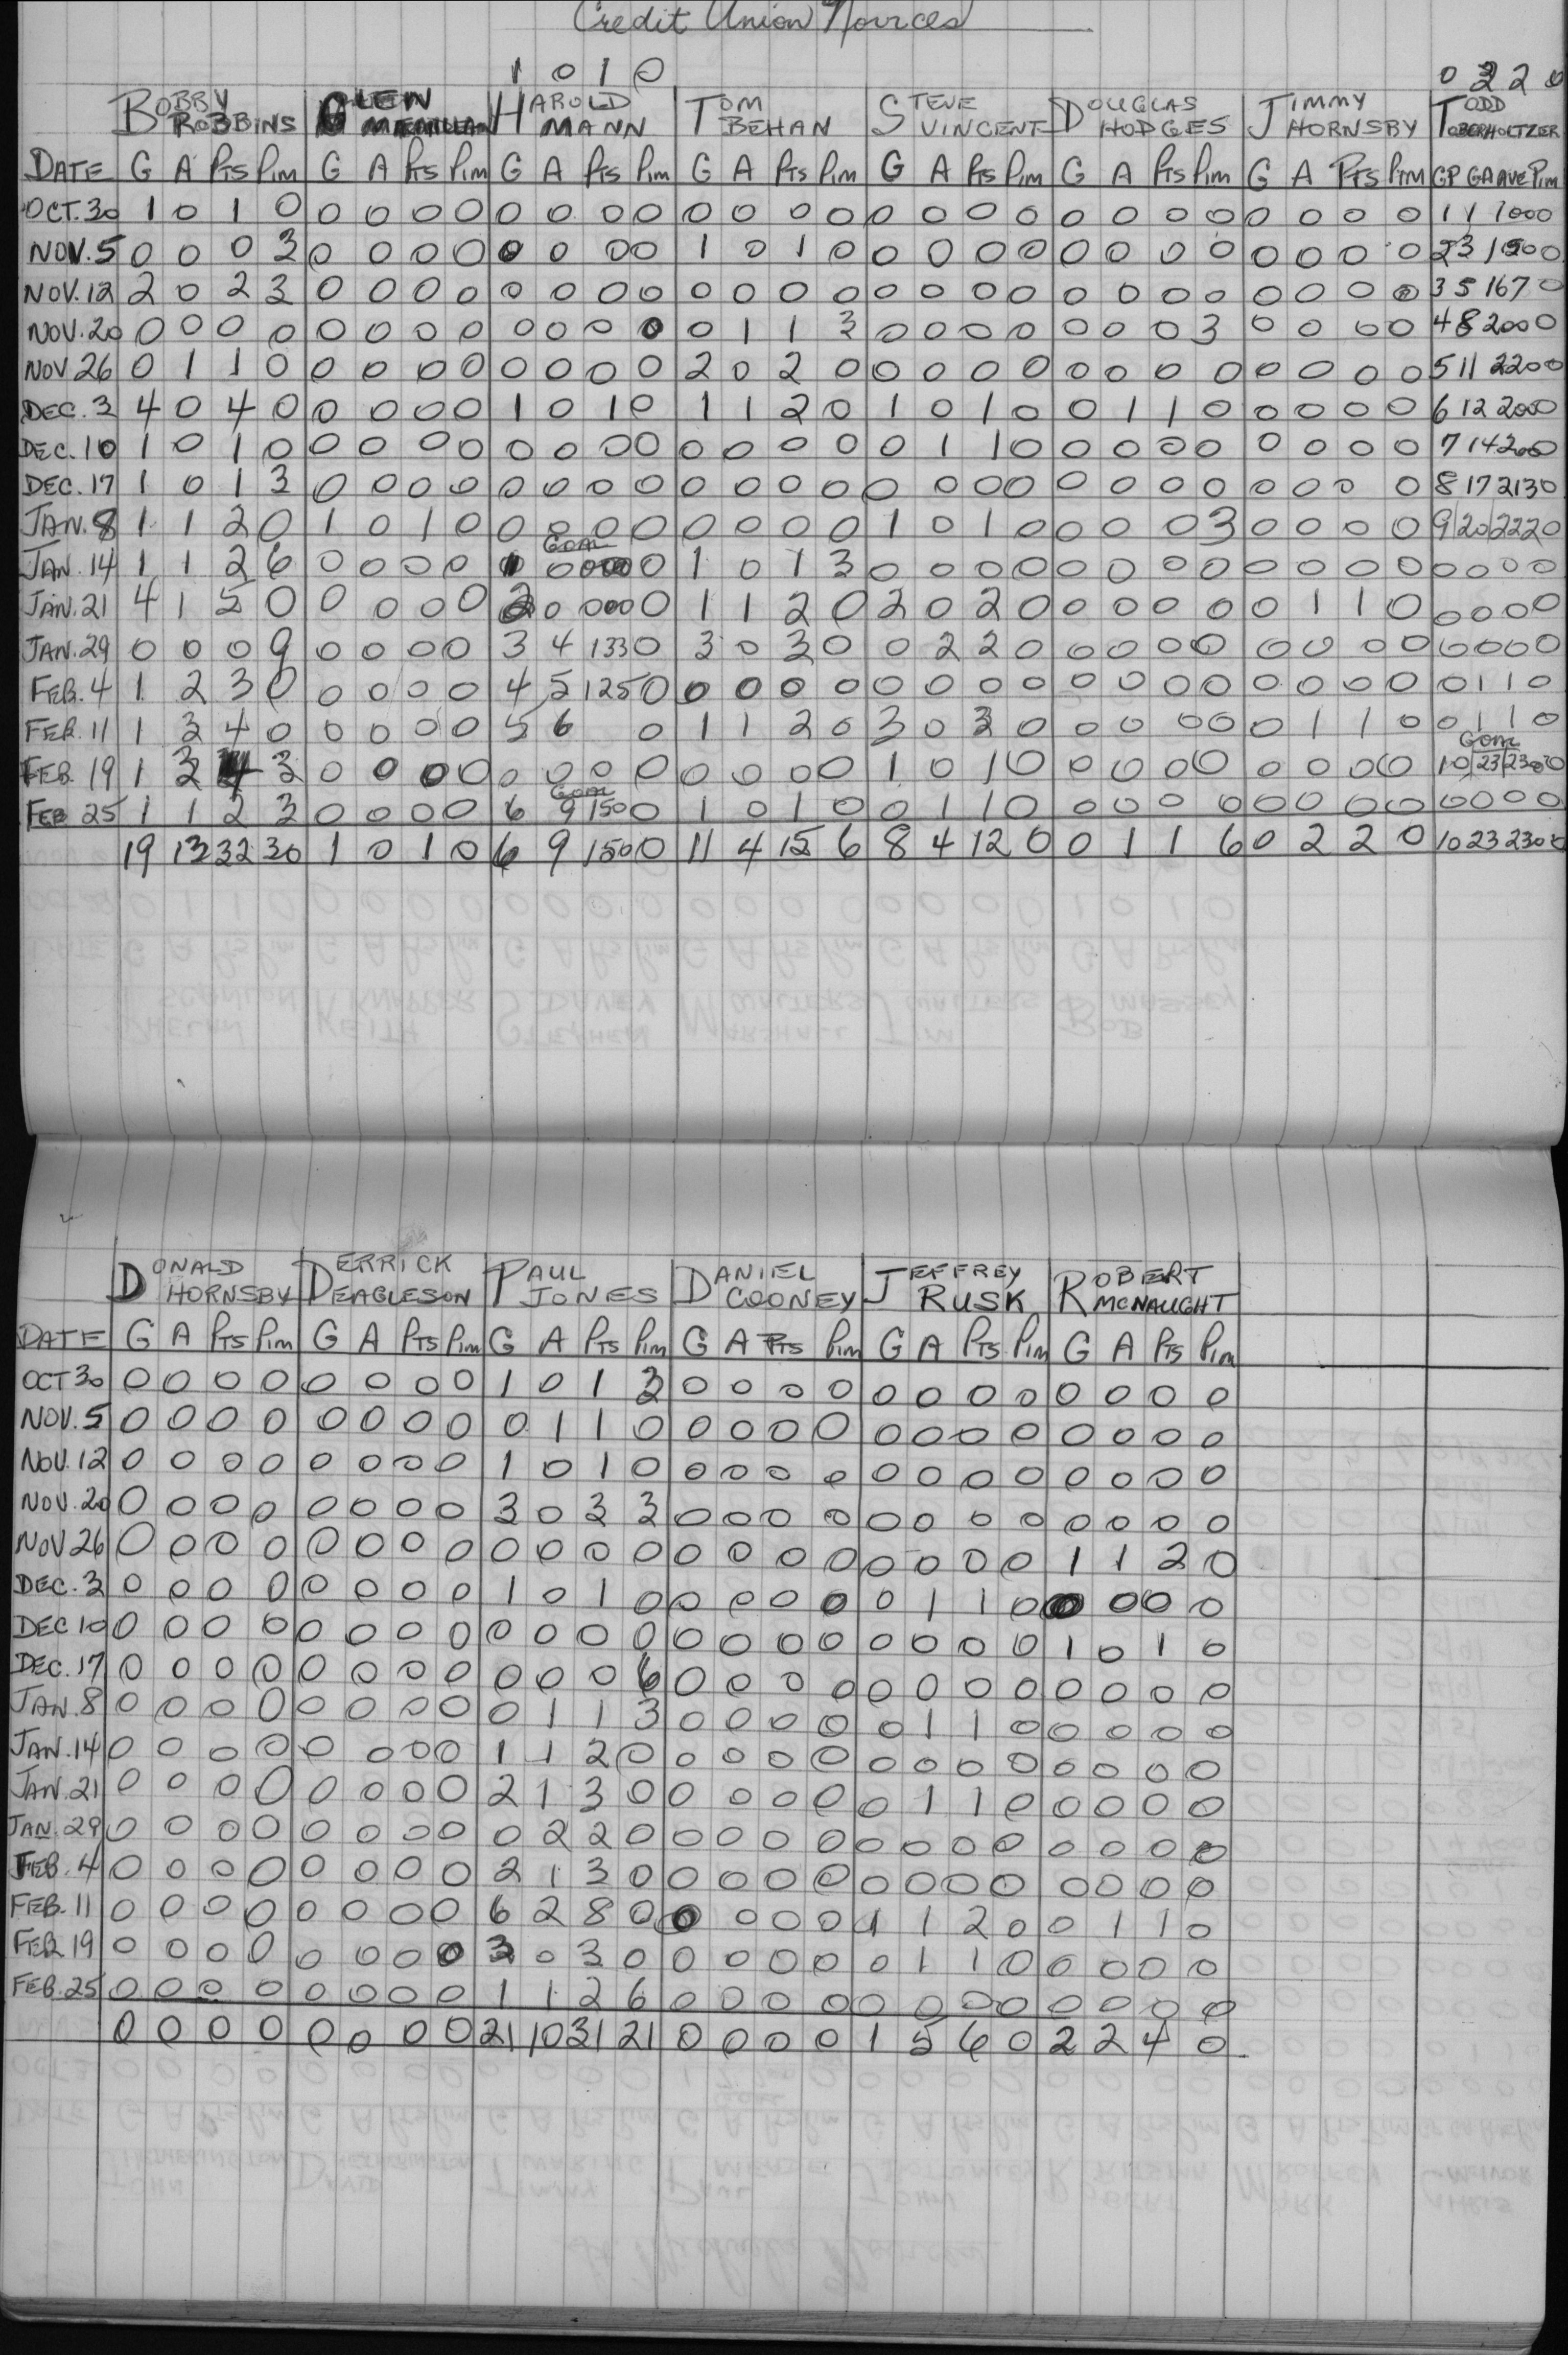 Credit Union Novices
1 0 1 0 0 3 2 2 0
BOBBY ROBBINS GLEN HAROLD MANN TOM BEHAN STEVE VINCENT DOUGLAS HODGES JIMMY HORNSBY TODD OBERHOLTZER
DATE G A PTS PIM G A PTS PIM G A PTS PIM G A PTS PIM G A PTS PIM G A PTS PIM G A PTS PIM GP GA AVE PIM
OCT. 30 1 0 1 0 0 0 0 0 0 0 0 0 0 0 0 0 0 0 0 0 0 0 0 0 0 0 0 0 1 1 100 0
NOV. 5 0 0 0 3 0 0 0 0 0 0 0 0 1 0 1 0 0 0 0 0 0 0 0 0 0 0 0 0 2 3 150 0
NOV. 12 2 0 2 3 0 0 0 0 0 0 0 0 0 0 0 0 0 0 0 0 0 0 0 0 0 0 0 0 3 5 167 0
NOV. 20 0 0 0 0 0 0 0 0 0 0 0 0 0 1 1 3 0 0 0 0 0 0 0 3 0 0 0 0 4 8 200 0
NOV 26 0 1 1 0 0 0 0 0 0 0 0 0 2 0 2 0 0 0 0 0 0 0 0 0 0 0 0 0 5 11 220 0
DEC. 3 4 0 4 0 0 0 0 0 1 0 1 0 1 1 2 0 1 0 1 0 0 1 1 0 0 0 0 0 6 12 200 0
DEC. 10 1 0 1 0 0 0 0 0 0 0 0 0 0 0 0 0 0 1 1 0 0 0 0 0 0 0 0 0 7 14 200 0
DEC. 17 1 0 1 3 0 0 0 0 0 0 0 0 0 0 0 0 0 0 0 0 0 0 0 0 0 0 0 0 8 17 213 0
JAN. 8 1 1 2 0 1 0 1 0 0 0 0 0 0 0 0 0 1 0 1 0 0 0 0 3 0 0 0 0 9 20 222 0
Goal
JAN. 14 1 1 2 6 0 0 0 0 1 0 000 0 1 0 1 3 0 0 0 0 0 0 0 0 0 0 0 0 0 0 0 0
JAN. 21 4 1 5 0 0 0 0 0 2 0 000 0 1 1 2 0 2 0 2 0 0 0 0 0 0 1 1 0 0 0 0 0
JAN. 29 0 0 0 9 0 0 0 0 3 4 133 0 3 0 3 0 0 2 2 0 0 0 0 0 0 0 0 0 0 0 0 0
FEB. 4 1 2 3 0 0 0 0 0 4 5 125 0 0 0 0 0 0 0 0 0 0 0 0 0 0 0 0 0 0 1 1 0
FEB. 11 1 3 4 0 0 0 0 0 5 6 0 1 1 2 0 3 0 3 0 0 0 0 0 0 1 1 0 0 1 1 0
Goal
FEB. 19 1 3 4 3 0 0 0 0 0 0 0 0 0 0 0 0 1 0 1 0 0 0 0 0 0 0 0 0 10 23 230 0
Goal
FEB 25 1 1 2 3 0 0 0 0 6 9 150 0 1 0 1 0 0 1 1 0 0 0 0 0 0 0 0 0 0 0 0 0
19 13 32 30 1 0 1 0 6 9 150 0 11 4 15 6 8 4 12 0 0 1 1 6 0 2 2 0 10 23 230 0
DONALD HORNSBY DERRICK DEAGLESON PAUL JONES DANIEL COONEY JEFFREY RUSK ROBERT MCNAUGHT
DATE G A PTS PIM G A PTS PIM G A PTS PIM G A PTS PIM G A PTS PIM G A PTS PIM
OCT 30 0 0 0 0 0 0 0 0 1 0 1 3 0 0 0 0 0 0 0 0 0 0 0 0
NOV. 5 0 0 0 0 0 0 0 0 0 1 1 0 0 0 0 0 0 0 0 0 0 0 0 0
NOV. 12 0 0 0 0 0 0 0 0 1 0 1 0 0 0 0 0 0 0 0 0 0 0 0 0
NOV. 20 0 0 0 0 0 0 0 0 3 0 3 3 0 0 0 0 0 0 0 0 0 0 0 0
NOV 26 0 0 0 0 0 0 0 0 0 0 0 0 0 0 0 0 0 0 0 0 1 1 2 0
DEC. 3 0 0 0 0 0 0 0 0 1 0 1 0 0 0 0 0 0 1 1 0 0 0 0 0
DEC 10 0 0 0 0 0 0 0 0 0 0 0 0 0 0 0 0 0 0 0 0 1 0 1 0
DEC. 17 0 0 0 0 0 0 0 0 0 0 0 6 0 0 0 0 0 0 0 0 0 0 0 0
JAN. 8 0 0 0 0 0 0 0 0 0 1 1 3 0 0 0 0 0 1 1 0 0 0 0 0
JAN. 14 0 0 0 0 0 0 0 0 1 1 2 0 0 0 0 0 0 0 0 0 0 0 0 0
JAN. 21 0 0 0 0 0 0 0 0 2 1 3 0 0 0 0 0 0 1 1 0 0 0 0 0
JAN. 29 0 0 0 0 0 0 0 0 0 2 2 0 0 0 0 0 0 0 0 0 0 0 0 0
FEB. 4 0 0 0 0 0 0 0 0 2 1 3 0 0 0 0 0 0 0 0 0 0 0 0 0
FEB. 11 0 0 0 0 0 0 0 0 6 2 8 0 0 0 0 0 1 1 2 0 0 1 1 0
FEB 19 0 0 0 0 0 0 0 0 3 0 3 0 0 0 0 0 0 1 1 0 0 0 0 0
FEB. 25 0 0 0 0 0 0 0 0 1 1 2 6 0 0 0 0 0 0 0 0 0 0 0 0
0 0 0 0 0 0 0 0 21 10 31 21 0 0 0 0 1 5 6 0 2 2 4 0